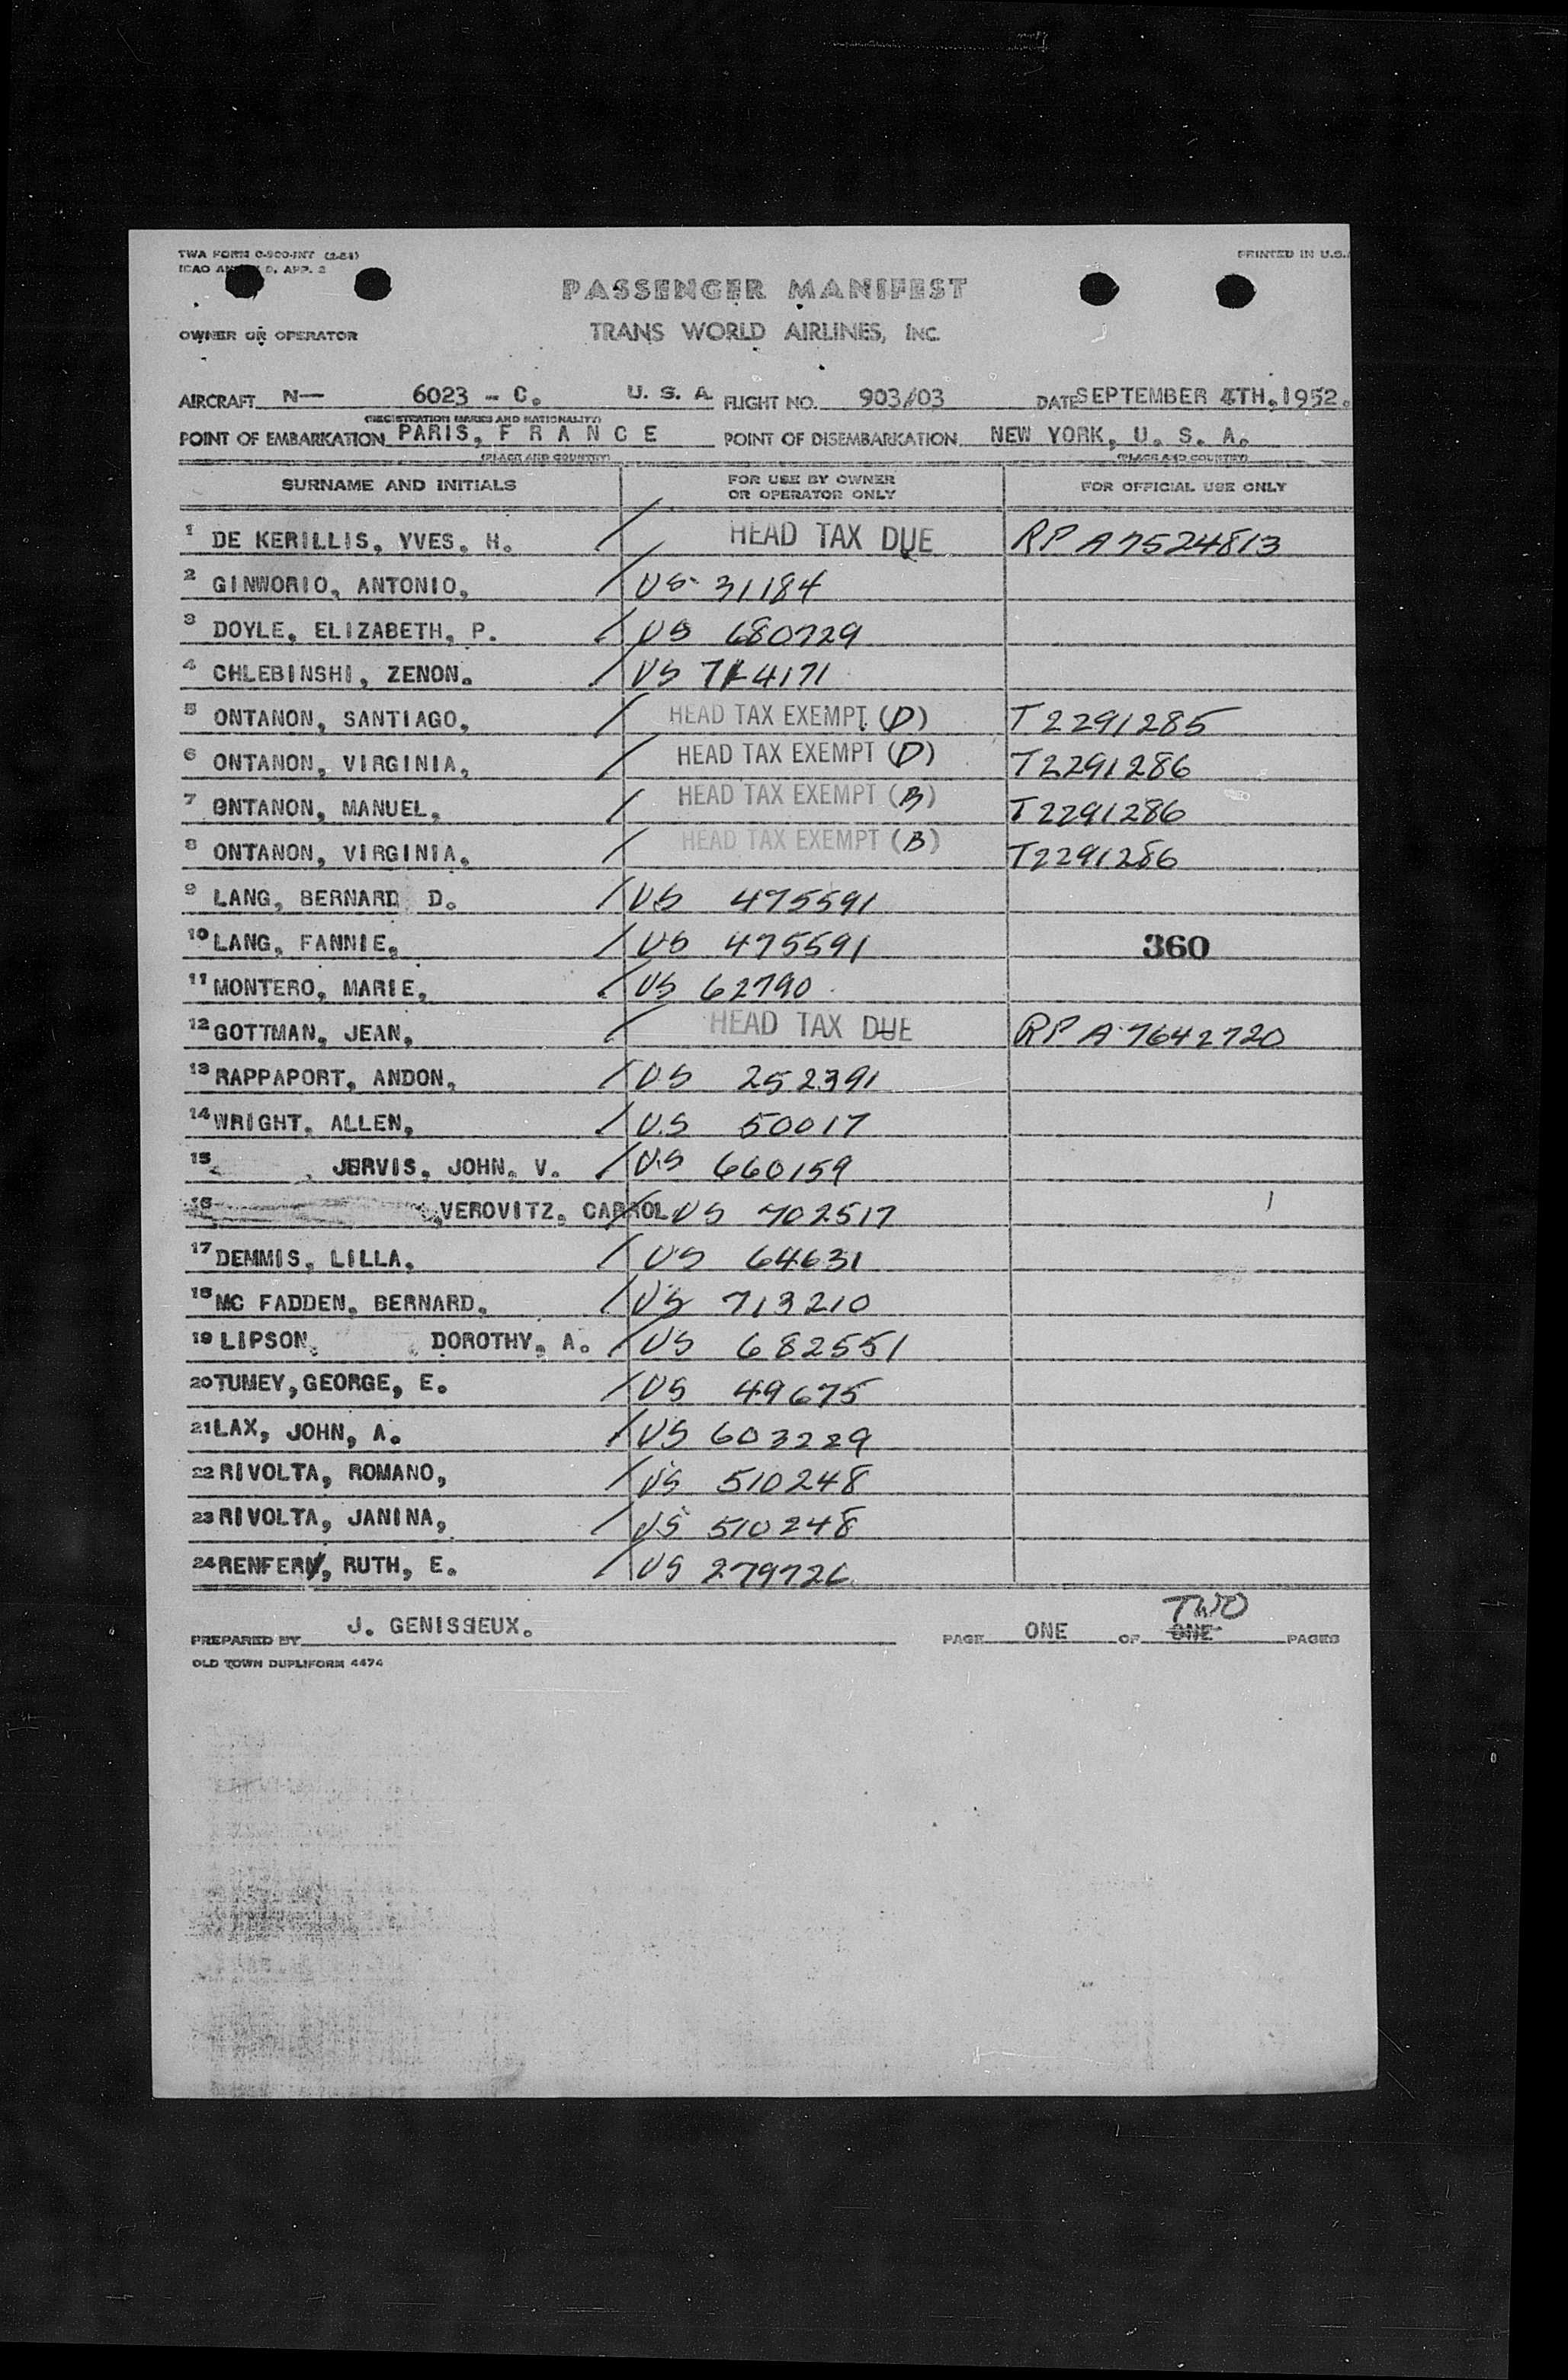 TWA FORM O-900-INT (2-51)
PRINTED IN U.S.
ICAO D. APP. 2
PASSENGER MANIFEST
OWNER OR OPERATOR TRANS WORLD AIRLINES, INC.
AIRCRAFT N— 6023 - C. U. S. A. FLIGHT NO. 903/03 DATE SEPTEMBER 4TH, 1952.
(REGISTRATION MARKS AND NATIONALITY)
POINT OF EMBARKATION PARIS, F R A N C E POINT OF DISEMBARKATION NEW YORK, U. S. A.
(PLACE AND COUNTRY) (PLACE AND COUNTRY)
SURNAME AND INITIALS FOR USE BY OWNER OR OPERATOR ONLY FOR OFFICIAL USE ONLY
1 DE KERILLIS, YVES, H. / HEAD TAX DUE RP A7524813
2 GINWORIO, ANTONIO, / US 31184
3 DOYLE, ELIZABETH, P. / US 680729
4 CHLEBINSHI, ZENON. / US 714171
5 ONTANON, SANTIAGO, / HEAD TAX EXEMPT (D) T2291285
6 ONTANON, VIRGINIA, / HEAD TAX EXEMPT (D) T2291286
7 ONTANON, MANUEL, / HEAD TAX EXEMPT (B) T2291286
8 ONTANON, VIRGINIA, / HEAD TAX EXEMPT (B) T2291286
9 LANG, BERNARD D. / US 475591
10 LANG, FANNIE, / US 475591 360
11 MONTERO, MARIE, / US 62790
12 GOTTMAN, JEAN, / HEAD TAX DUE RP A 7642720
13 RAPPAPORT, ANDON, / US 252391
14 WRIGHT, ALLEN, / US 50017
15 , JERVIS, JOHN, V. / US 660159
16 ,VEROVITZ, CARROL / US 702517
17 DEMMIS, LILLA, / US 64631
18 MC FADDEN, BERNARD, / US 713210
19 LIPSON, DOROTHY, A. / US 682551
20 TUMEY, GEORGE, E. / US 49675
21 LAX, JOHN, A. / US 603229
22 RIVOLTA, ROMANO, / US 510248
23 RIVOLTA, JANINA, / US 510248
24 RENFERN, RUTH, E. / US 279726
TWO
PREPARED BY J. GENISSIEUX. PAGE ONE OF ONE PAGES
OLD TOWN DUPLIFORM 4474